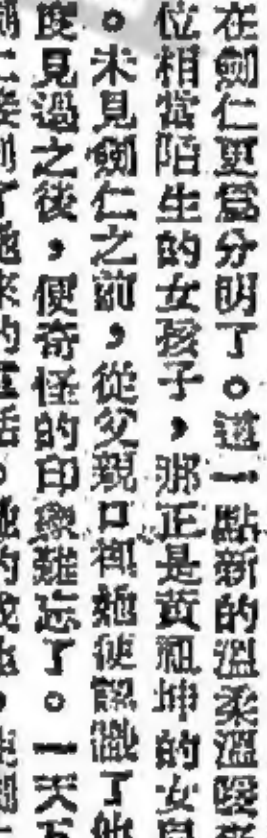 在劍仁更為分明了。這一點新的溫柔溫暖來
位相當陌生的女孩子,那正是黃祖坤的女兒
。未見劍仁之前,從父親口裡她便認識了他
度見過之後,便奇怪的印象難忘了。一天下
劍仁接到了她來的電話。她的